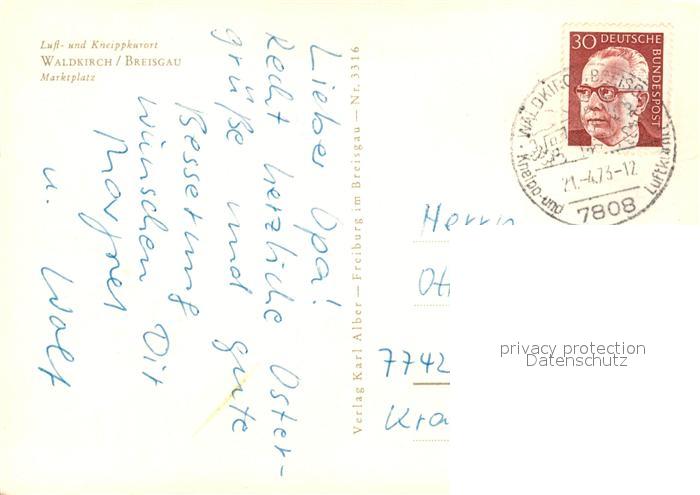 Luft- und Kneippkurort
WALDKIRCH / BREISGAU
Marktplatz
Lieber Opa!
Recht herzliche Oster-
grüße und gute
Besserung
wünschen Dir
Margret
u. Walt
Verlag Karl Alber — Freiburg im Breisgau — Nr. 3316
30 DEUTSCHE
BUNDESPOST
WALDKIRCH · BREISGAU
21.-4.73-12
Kneipp- und Luftkurort
7808
Herrn
7742
privacy protection
Datenschutz